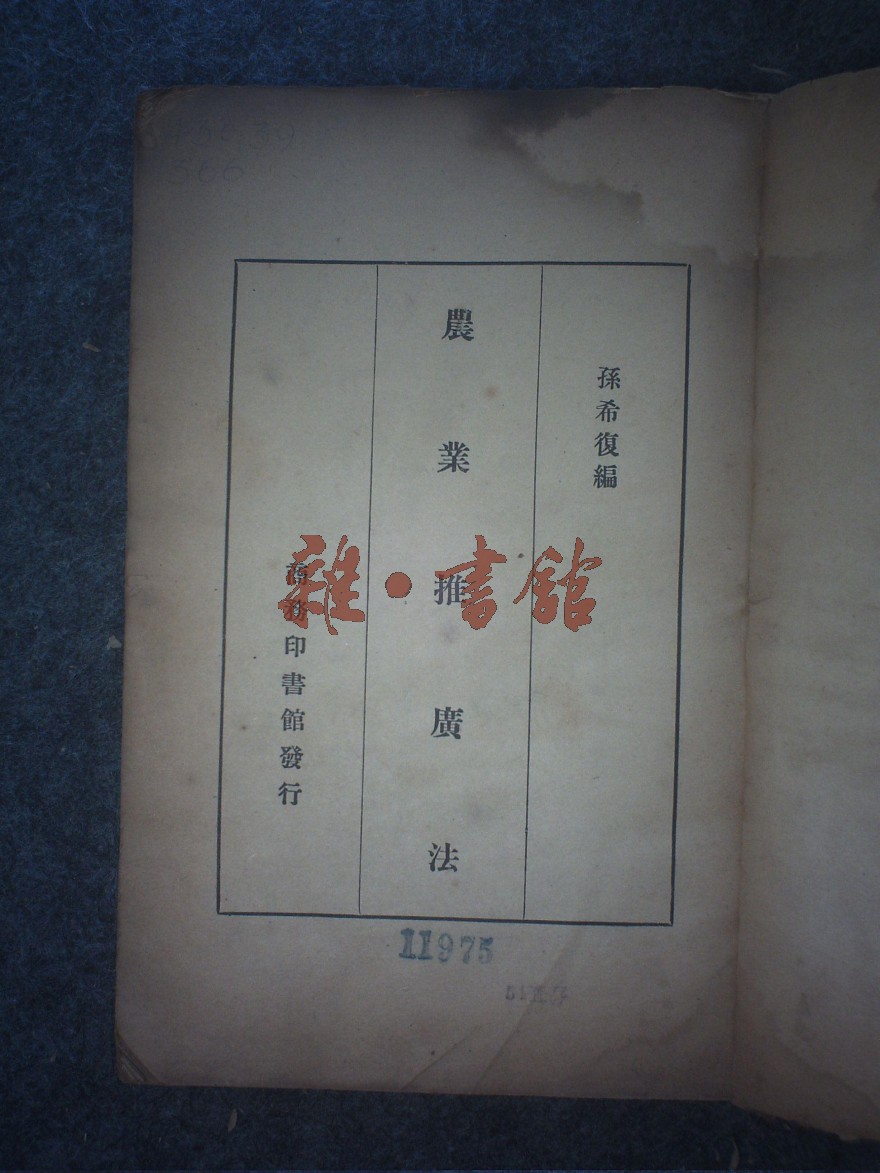 孫希復編
農業推廣法
商務印書館發行
雜·書館
11975